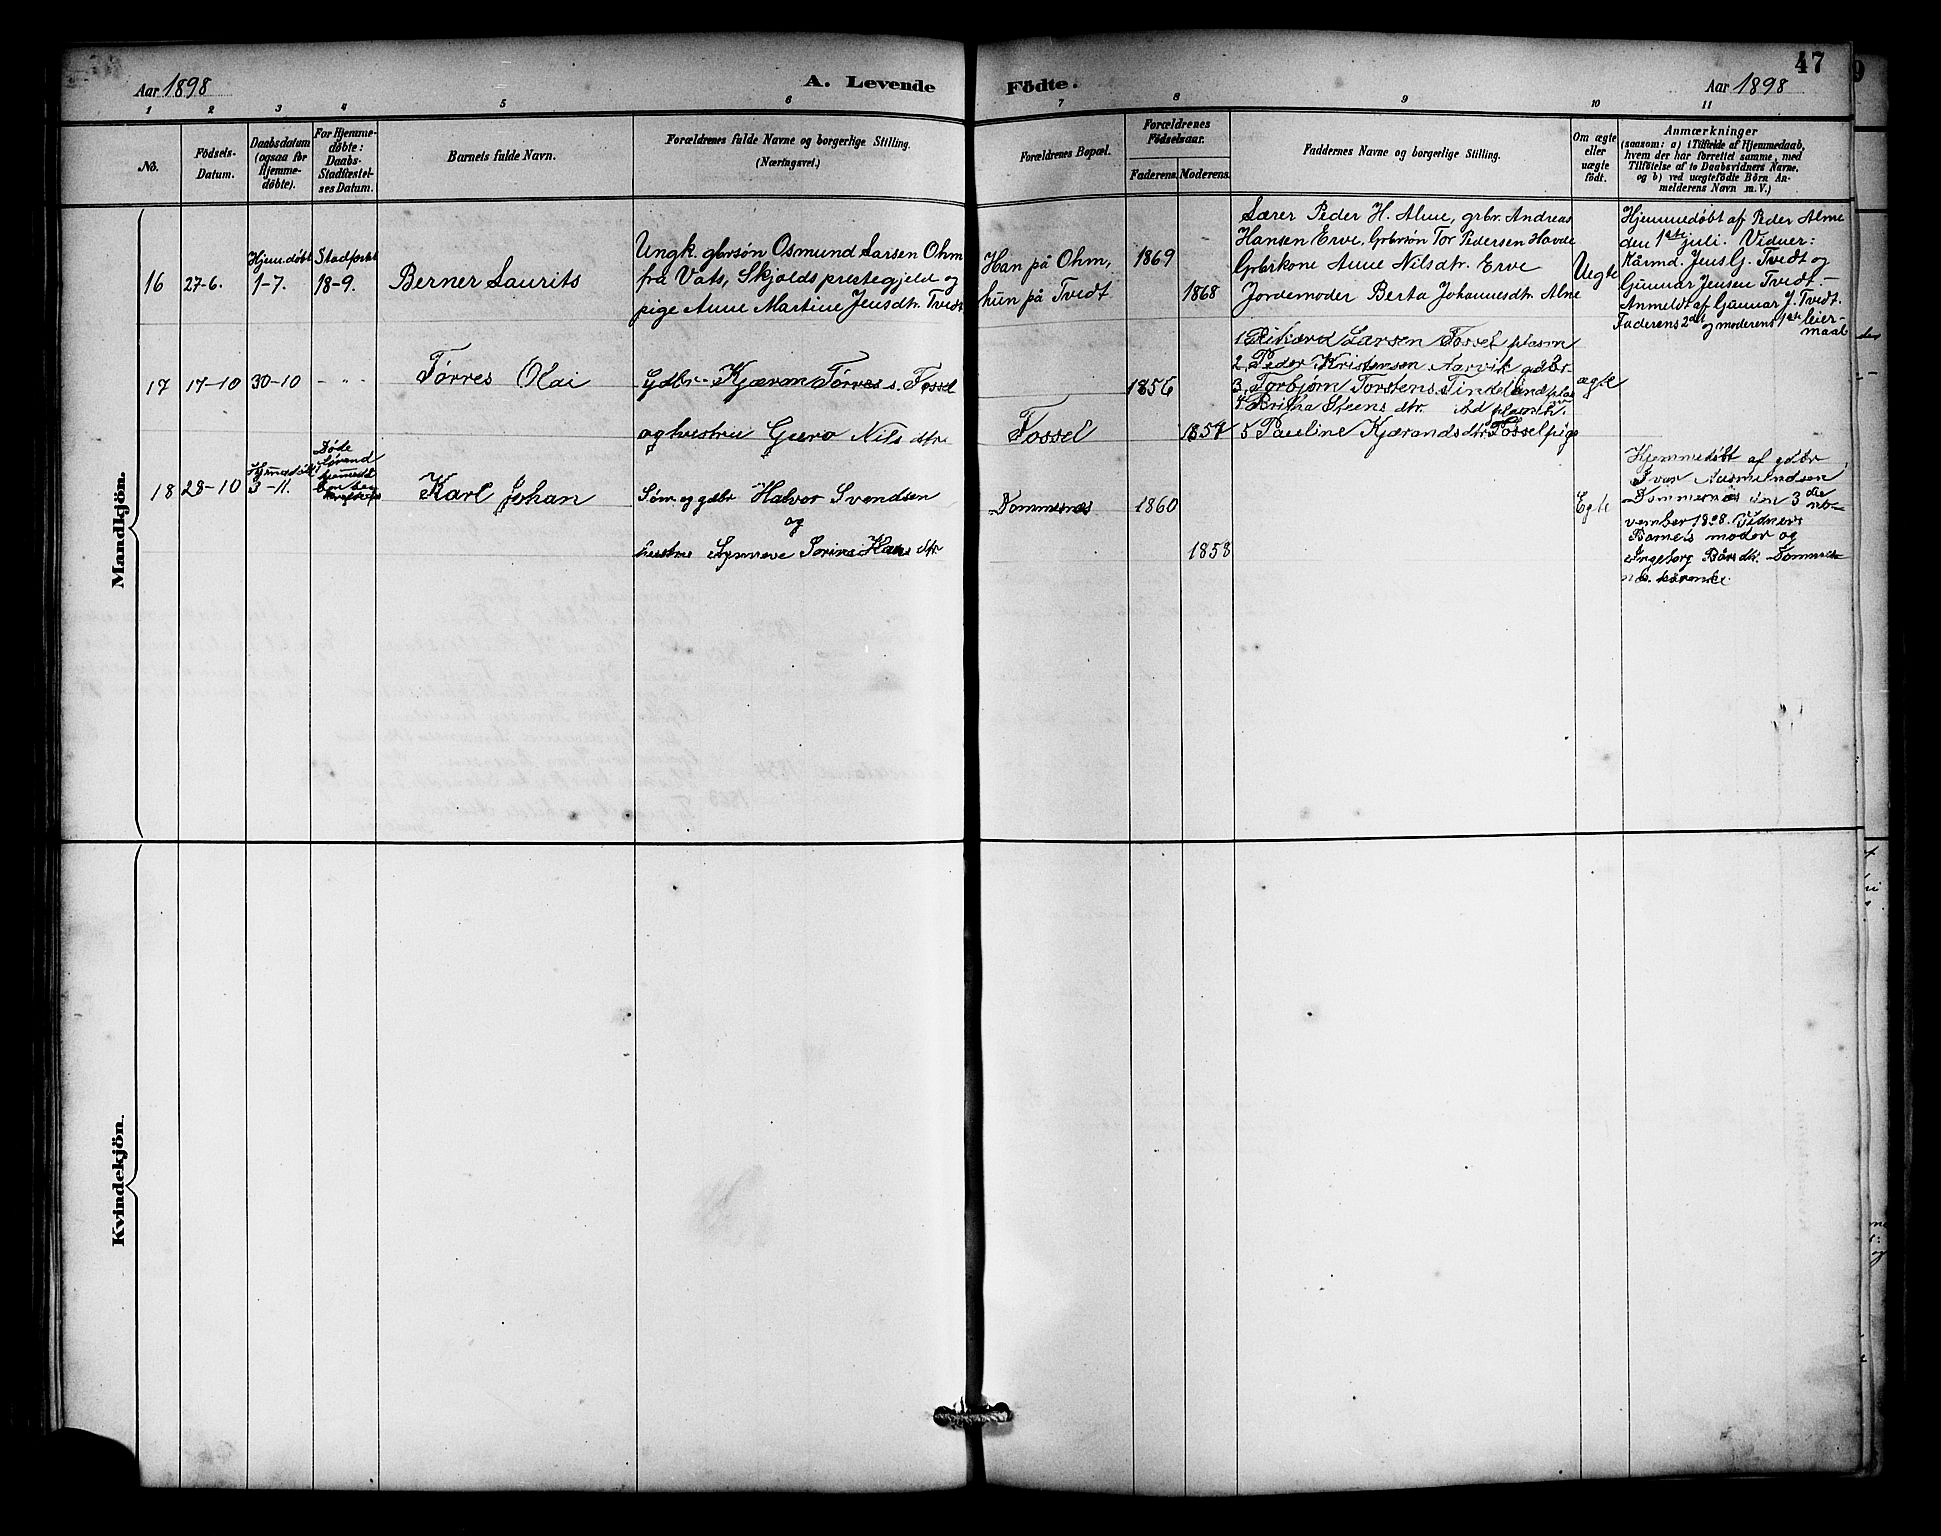 47
Aar 1898
A. Levende Födte.
Aar 1898
1 2 3 4 5 6 7 8 9 10 11
No.
Födsels-
Datum.
Daabsdatum
(ogsaa for
Hjemme-
døbte).
For Hjemme-
døbte:
Daabs-
Stadfæstel-
ses Datum.
Barnets fulde Navn.
Forældrenes fulde Navne og borgerlige Stilling.
(Næringsvei.)
Forældrenes Bopæl.
Forældrenes
Födselsaar.
Faderens. Moderens.
Faddernes Navne og borgerlige Stilling.
Om ægte
eller
uægte
født.
Anmærkninger
(saasom: a) i Tilfælde af Hjemmedaab,
hvem der har forrettet samme, med
Tilföielse af to Daabsvidners Navne,
og b) ved uægtefödte Börn An-
melderens Navn m. V.)
Mandkjön.
16
27-6.
Hjem.døbt
1-7.
18-9.
Berner Laurits
Ungk. gbrsøn Osmund Larsen Ohm
fra Vats, Skjolds prestegjeld og
pige Anne Martine Jensdtr. Tvedt
Han på Ohm,
hun på Tvedt
1869
1868
Lærer Peder H. Alne, grbr. Andreas
Hansen Erve, Grbrsøn Tor Pedersen Havde
Grbrkone Anne Nilsdtr. Erve
Jordemoder Berta Johannesdtr. Alne
Uegte
Hjemmedøbt af Peder Alme
den 1ste juli. Vidner:
Kårmd. Jens G. Tvedt og
Gunnar Jensen Tvedt.-
Anmeldt af Gunnar J. Tvedt.
Faderens 2det og moderens 1ste leier-
maal
17
17-10
30-10
- " -
Tørres Kai
Gdbr- Kjæran Tørres s. Fossel
og hustru Guro Nils dtr
Fossel
1856
1857
1 Rikard Larsen Fossel plasm
2 Peder Kristensen Narvik gdbr-
3 Torbjørn Torstens
4 Britha Steens dtr. Ad
5 Pauline Kjærands dtr Fossel pige
ægte
18
28-10
3-11.
Døde
Karl Johan
Søm. og gdbr Halvor Svendsen
og
hustru Synneve Sorine Hans dtr
Dommesnes
1860
1858
Egte
Hjemmedøbt af gdbr
Ivar Aasmundsen
Dommesnes den 3die no-
vember 1898. Vidner
Barnets moder og
Ingeborg Bårdsdtr. Dommes-
nes. kårenke.
Kvindekjön.